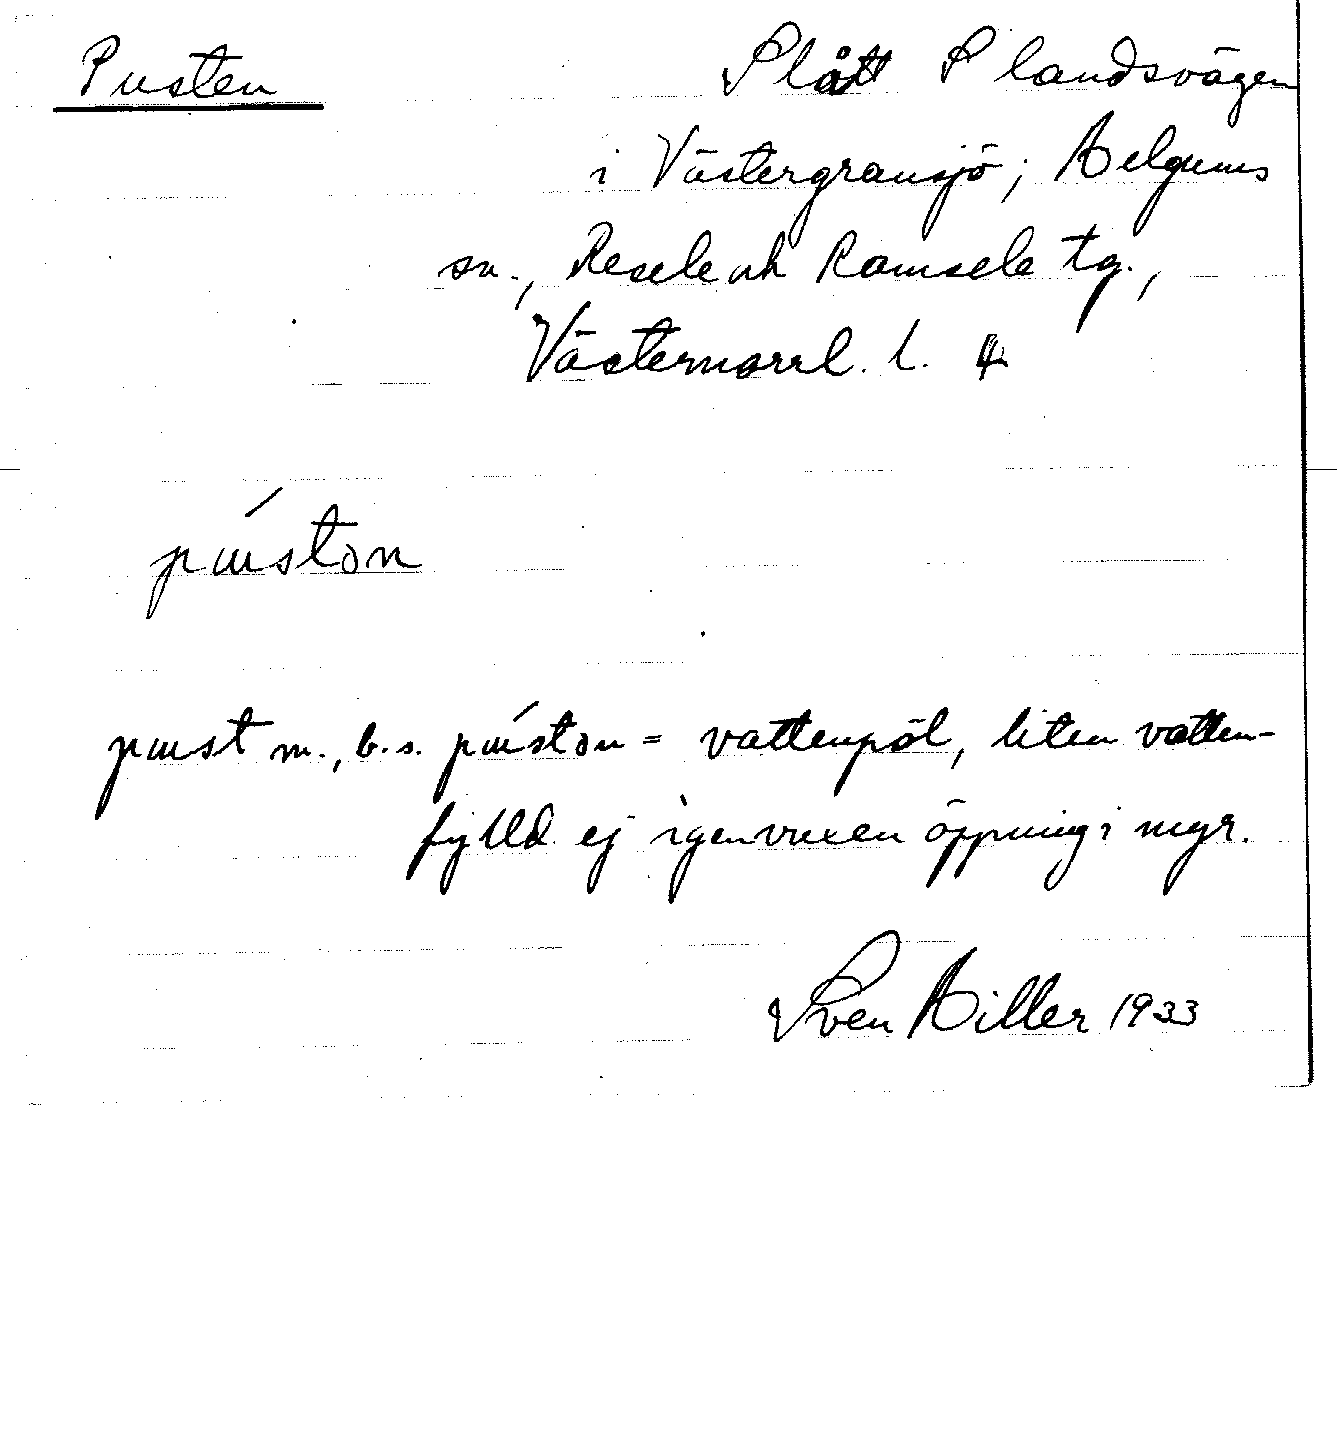 Pusten
Slått S landsvägen
i Västergransjö; Helgums
sn., Resele och Ramsele tg.,
Västernorrl. l. 4
pɯ́stən
pɯst m., b.s. pɯ́stən = vattenpöl, liten vatten-
fylld ej igenvuxen öppning i myr.
Sven Hiller 1933